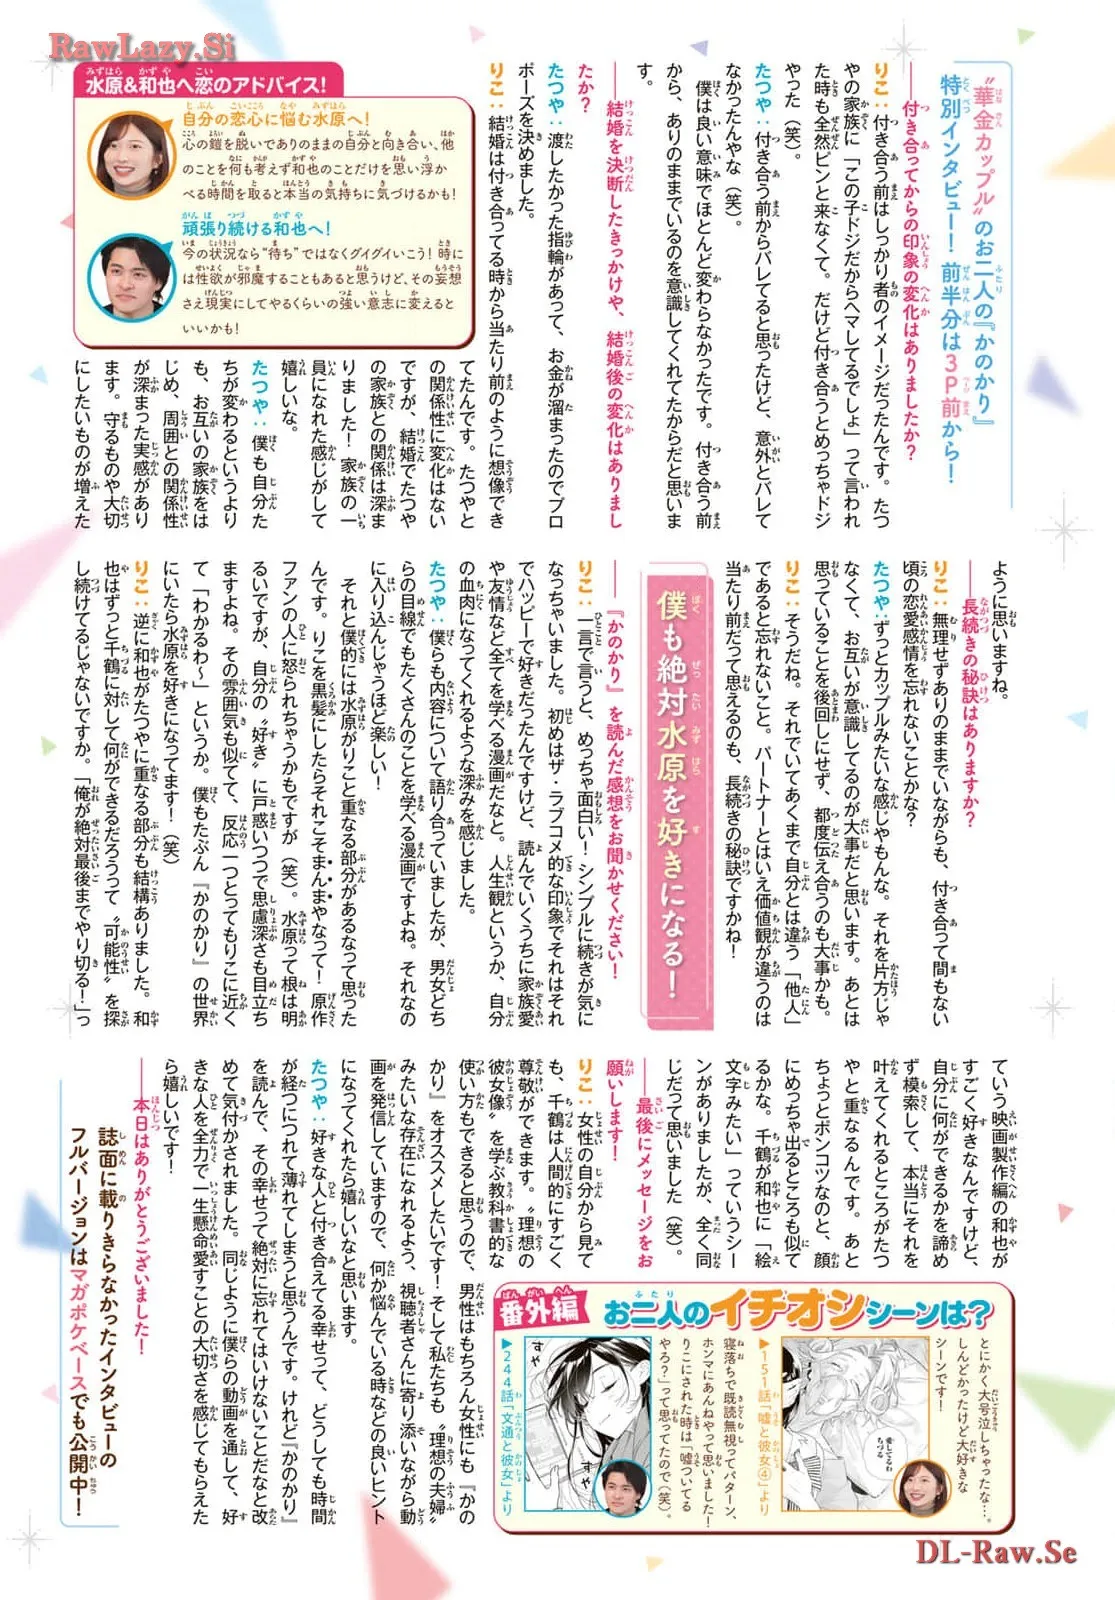 RawLazy.Si
“華金カップル”のお二人の『かのかり』
特別インタビュー！ 前半分は3P前から！
――付き合ってからの印象の変化はありましたか？
りこ：付き合う前はしっかり者のイメージだったんです。たつ
やの家族に「この子ドジだからヘマしてるでしょ」って言われ
た時も全然ピンと来なくて。だけど付き合うとめっちゃドジ
やった（笑）。
たつや：付き合う前からバレてると思ったけど、意外とバレて
なかったんやな（笑）。
僕は良い意味でほとんど変わらなかったです。付き合う前
から、ありのままでいるのを意識してくれてたからだと思いま
す。
――結婚を決断したきっかけや、結婚後の変化はありまし
たか？
たつや：渡したかった指輪があって、お金が溜まったのでプロ
ポーズを決めました。
りこ：結婚は付き合ってる時から当たり前のように想像でき
てたんです。たつやと
の関係性に変化はない
ですが、結婚でたつや
の家族との関係は深ま
りました！ 家族の一
員になれた感じがして
嬉しいな。
たつや：僕も自分た
ちが変わるというより
も、お互いの家族をは
じめ、周囲との関係性
が深まった実感があり
ます。守るものや大切
にしたいものが増えた
水原&和也へ恋のアドバイス！
自分の恋心に悩む水原へ！
心の鎧を脱いでありのままの自分と向き合い、他
のことを何も考えず和也のことだけを思い浮か
べる時間を取ると本当の気持ちに気づけるかも！
頑張り続ける和也へ！
今の状況なら“待ち”ではなくグイグイいこう！ 時に
は性欲が邪魔することもあると思うけど、その妄想
さえ現実にしてやるくらいの強い意志に変えると
いいかも！
ように思いますね。
――長続きの秘訣はありますか？
りこ：無理せずありのままでいながらも、付き合って間もない
頃の恋愛感情を忘れないことかな？
たつや：ずっとカップルみたいな感じやもんな。それを片方じゃ
なくて、お互いが意識してるのが大事だと思います。あとは
思っていることを後回しにせず、都度伝え合うのも大事かも。
りこ：そうだね。それでいてあくまで自分とは違う「他人」
であると忘れないこと。パートナーとはいえ価値観が違うのは
当たり前だって思えるのも、長続きの秘訣ですかね！
僕も絶対水原を好きになる！
――『かのかり』を読んだ感想をお聞かせください！
りこ：一言で言うと、めっちゃ面白い！ シンプルに続きが気に
なっちゃいました。初めはザ・ラブコメ的な印象でそれはそれ
でハッピーで好きだったんですけど、読んでいくうちに家族愛
や友情など全てを学べる漫画だなと。人生観というか、自分
の血肉になってくれるような深みを感じました。
たつや：僕らも内容について語り合っていましたが、男女どち
らの目線でもたくさんのことを学べる漫画ですよね。それなの
に入り込んじゃうほど楽しい！
それと僕的には水原がりこと重なる部分があるなって思った
んです。りこを黒髪にしたらそれこそまんまやなって！ 原作
ファンの人に怒られちゃうかもですが（笑）。水原って根は明
るいですが、自分の“好き”に戸惑いつつで思慮深さも目立ち
ますよね。その雰囲気も似てて、反応一つとってもりこに近く
て「わかるわ～」というか。僕もたぶん『かのかり』の世界
にいたら水原を好きになってます！（笑）
りこ：逆に和也がたつやに重なる部分も結構ありました。和
也はずっと千鶴に対して何ができるだろうって“可能性”を探
し続けてるじゃないですか。「俺が絶対最後までやり切る！」っ
ていう映画製作編の和也が
すごく好きなんですけど、
自分に何ができるかを諦め
ず模索して、本当にそれを
叶えてくれるところがたつ
やと重なるんです。あと
ちょっとポンコツなのと、顔
にめっちゃ出るところも似て
るかな。千鶴が和也に「絵
文字みたい」っていうシー
ンがありましたが、全く同
じだって思いました（笑）。
――最後にメッセージをお
願いします！
りこ：女性の自分から見て
も、千鶴は人間的にすごく
尊敬ができます。“理想の
彼女像”を学ぶ教科書的な
使い方もできると思うので、男性はもちろん女性にも『かの
かり』をオススメしたいです！ そして私たちも“理想の夫婦”
みたいな存在になれるよう、視聴者さんに寄り添いながら動
画を発信していますので、何か悩んでいる時などの良いヒント
になってくれたら嬉しいなと思います。
たつや：好きな人と付き合えてる幸せって、どうしても時間
が経つにつれて薄れてしまうと思うんです。けれど『かのかり』
を読んで、その幸せって絶対に忘れてはいけないことだなと改
めて気付かされました。同じように僕らの動画を通して、好
きな人を全力で一生懸命愛すことの大切さを感じてもらえた
ら嬉しいです！
――本日はありがとうございました！
誌面に載りきらなかったインタビューの
フルバージョンはマガポケベースでも公開中！
番外編 お二人のイチオシシーンは？
とにかく大号泣しちゃったな…。
しんどかったけど大好きな
シーンです！
▶151話「嘘と彼女④」より
愛してるわ
ちづる
寝落ちで既読無視ってパターン、
ホンマにあんねやって思いました！
りこにされた時は「嘘ついてる
やろ？」って思ってたので（笑）。
▶244話「文通と彼女」より
すや
すや
DL-Raw.Se